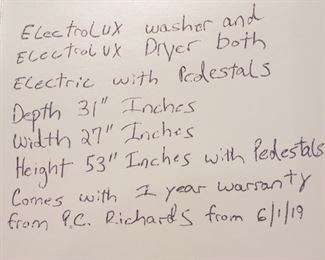 Electrolux washer and
Electrolux Dryer both
Electric with Pedestals
Depth 31" Inches
Width 27" Inches
Height 53" Inches with Pedestals
Comes with 1 year warranty
from P.C. Richards from 6/1/19